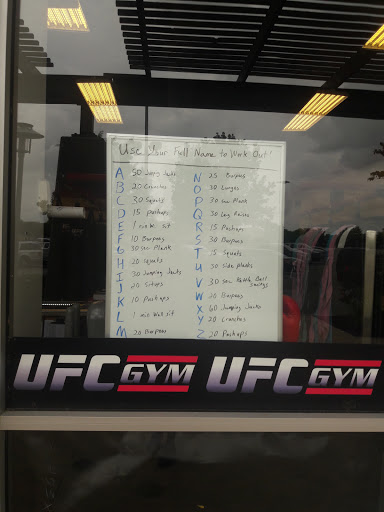 Use Your Full Name to Work Out!
A 50 Jumping Jacks
B 20 Crunches
C 30 Squats
D 15 pushups
E 1 min W. sit
F 10 Burpees
G 30 sec Plank
H 20 squats
I 30 Jumping Jacks
J 20 Situps
K 10 Pushups
L 1 min Wall sit
M 20 Burpees
N 25 Burpees
O 30 Lunges
P 30 sec Plank
Q 30 Leg Raises
R 15 Pushups
S 30 Burpees
T 15 Squats
U 30 Side planks
V 30 sec Kettle Ball
swings
W 10 Burpees
X 60 Jumping Jacks
Y 20 Crunches
Z 20 Pushups
UFC GYM UFC GYM